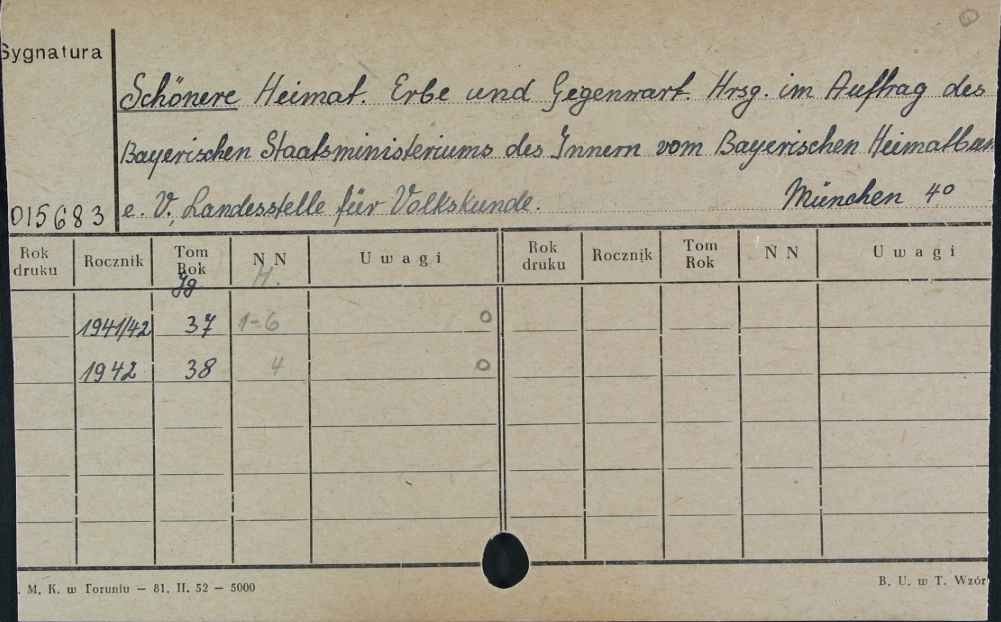 Sygnatura
Schönere Heimat. Erbe und Gegenwart. Hrsg. im Auftrag des
Bayerischen Staatsministeriums des Innern vom Bayerischen Heimatbun
015683 e. V., Landesstelle für Volkskunde. München 4°
Rok druku Rocznik Tom Rok N N Uwagi Rok druku Rocznik Tom Rok N N Uwagi
Jg H.
1941/42 37 1-6 0
1942 38 4 0
. M. K. w Toruniu — 81. II. 52 — 5000 B. U. w T. Wzór